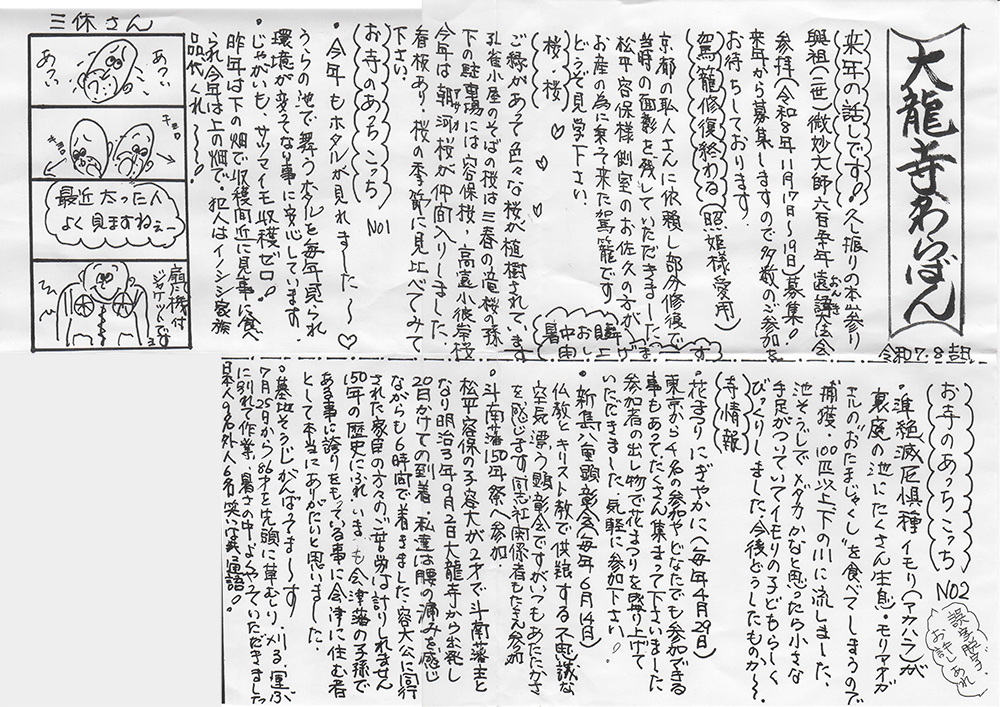 大龍寺かわらばん
令和7.8吉日
来年の話しです!
久し振りの本山参り
興祖(二世)微妙大師六百五十年遠諱大法会
おんき
参拝(令和8年11月17日〜19日)募集!
来年から募集しますので多数のご参加を
お待ちしております。
駕籠修復終わる(照姫様愛用)
京都の職人さんに依頼し部分修復で
当時の面影を残していただきました
松平容保様側室のお佐久の方が
お産の為に乗って来た駕籠です
どうぞ見学下さい。
桜・桜
ご縁があって色々な桜が植樹されています
孔雀小屋のそばの桜は三春の滝桜の孫
下の駐車場には容保桜、高遠小彼岸桜
今年は朝河桜が仲間入りしました、
アサカワ
看板あり、桜の季節に見比べてみて
下さい。
お寺のあっちこっち
NO1
・今年もホタルが見れました〜♡
うらの池で舞うホタルを毎年見られ
環境が変ってない事に安心しています。
・じゃがいも、サツマイモ収穫ゼロ!
昨年は下の畑で収穫間近に見事に食べ
られ今年は上の畑で、犯人はイノシシ家族
品代くれ〜!
三休さん
あつい
あつい
キョロ
キョロ
最近太った人
よく見ますねぇー
扇風機付
ジャケットですョ
暑中お見舞
申し上げます
お寺のあっちこっち
NO2
誤字脱字
お許しあれ
・準絶滅危惧種イモリ(アカハラ)が
裏庭の池にたくさん生息!モリアオガ
エルの“おたまじゃくし”を食べてしまうので
捕獲・100匹以上下の川に流しました、
池そうじでメダカかなと思ったら小さな
手足がついていてイモリの子どもらしく
びっくりしました。今後どうしたものか〜。
寺情報
・花まつりにぎやかに(毎年4月29日)
東京から4名の参加やどなたでも参加できる
事もあってたくさん集まって下さいました
参加者の出し物で花まつりを盛り上げて
いただきました 気軽に参加下さい!
・新島八重顕彰会(毎年6月14日)
仏教とキリスト教で供養する不思議な
空気漂う顕彰会ですがいつもあたたかさ
を感じます 同志社関係者もたくさん参加
・斗南藩150年祭へ参加
松平容保の子容大が2才で斗南藩主と
なり明治3年9月2日大龍寺から出発し
20日かけての到着、私達は腰の痛みを感じ
ながらも6時間で着きました、容大公に同行
された家臣の方々のご苦労は計りしれません
150年の歴史にふれ いまも会津藩の子孫で
ある事に誇りをもっている事に会津に住む者
として本当にありがたいと思いました
・墓地そうじがんばってま〜す
7月25日から86才を先頭に草むしり、刈る、運ぶ
に別れて作業、暑さの中よくやっていただきました
日本人9名外人6名 笑いは共通語!